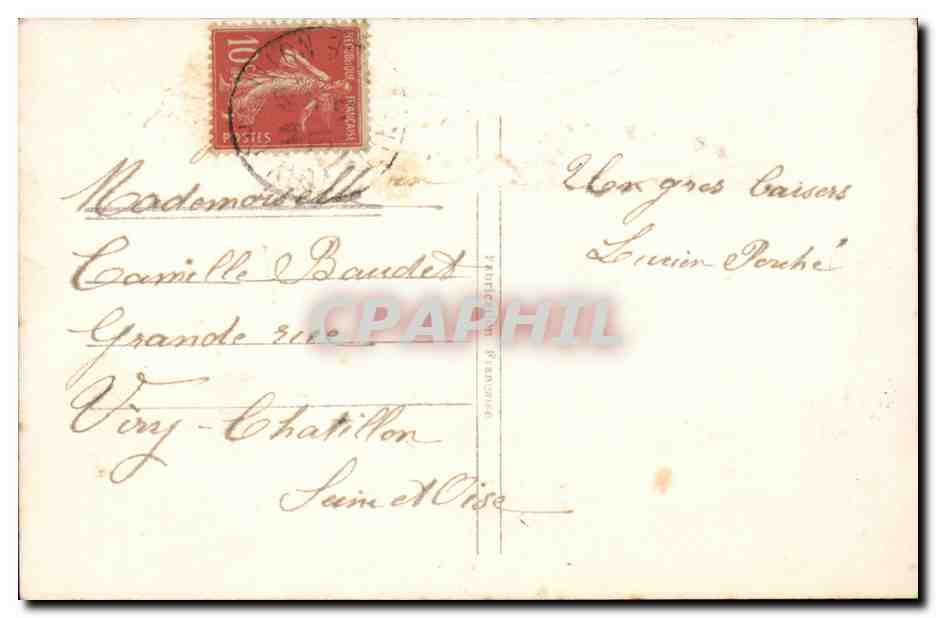 10c
REPUBLIQUE FRANÇAISE
POSTES
Mademoiselle
Camille Baudet
Grande rue
Viry-Chatillon
Seine et Oise
Fabrication Française
Un gros baisers
Lucien Porché
CPAPHIL